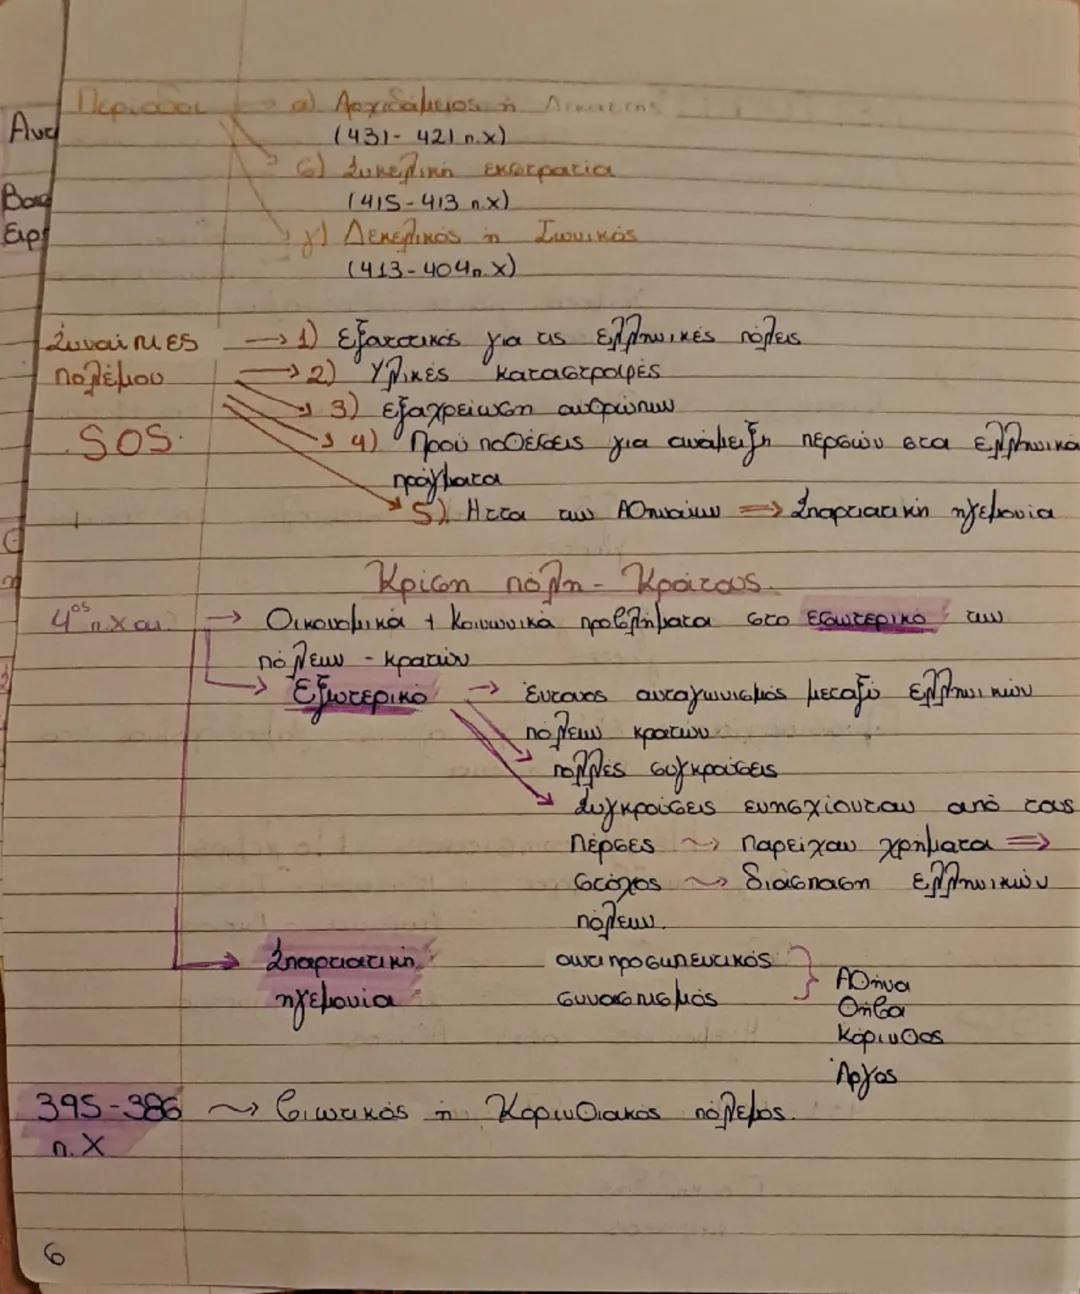 Περίοδοι → α) Αρχιδάμειος ή
(431 - 421 π.χ)
β) Σικελική εκστρατία
(415 - 413 π.χ)
γ) Δεκελικός ή Ιωνικός
(413 - 404 π.χ)
Αυ
Βα
Ειρ
Συναίπιες → 1) εξαντικός για τις ελληνικές πόλεις
πολέμου → 2) Υλικές καταστροφές
→ 3) εξαχρείωση ανθρώπων
SOS. → 4) Προϋποθέσεις για ανάμειξη περσών στα ελληνικά
πράγματα
→ 5) Ηττα των Αθηναίων ⇒ Σπαρτιατική ηγεμονία
Κρίση πόλη - Κράτους.
4ος π.χ αι. → Οικονομικά + Κοινωνικά προβλήματα στο εσωτερικό των
πόλεων - κρατών
→ Εξωτερικό → Έντονος ανταγωνισμός μεταξύ ελληνικών
πόλεων κρατών
→ πολλές συγκρούσεις
→ Συγκρούσεις ενησχίονταν από τους
Πέρσες ⤳ Παρείχαν χρήματα ⇒
στόχος ⤳ διάσπαση ελληνικών
πόλεων.
→ Σπαρτιατική αντιπροσωπευτικός
ηγεμονία συνασπισμός } Αθήνα
Θήβα
Κόρινθος
Άργος
395-386 ⤳ βιωτικός ή Κορινθιακός πόλεμος.
π.Χ
6